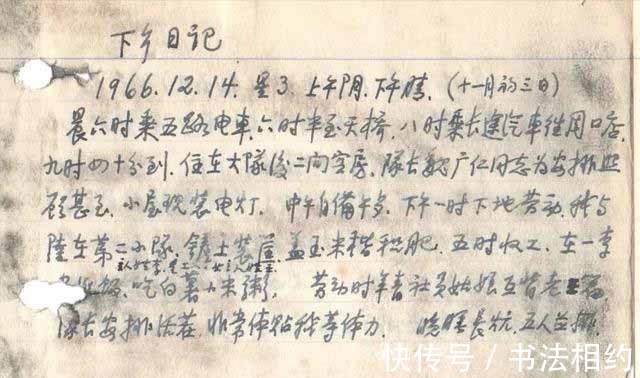 下乡日记
1966.12.14. 星3. 上午阴. 下午晴. (十一月初三日)
晨六时乘五路电车, 六时半至天桥, 八时乘长途汽车往周口店,
九时四十分到. 住在大队后二间空房, 队长魏广仁同志为安排照
顾甚至, 小屋现装电灯. 中午自备午食. 下午一时下地劳动, 我与
陆在第二小队, 铲土装筐盖玉米秸积肥. 五时收工. 在一李
吃白薯小米粥. 劳动时年青社员姑娘互背老三篇,
队长安排活茬, 非常体贴我等体力. 晚睡长炕, 五人并排.
快传号 / 书法相约